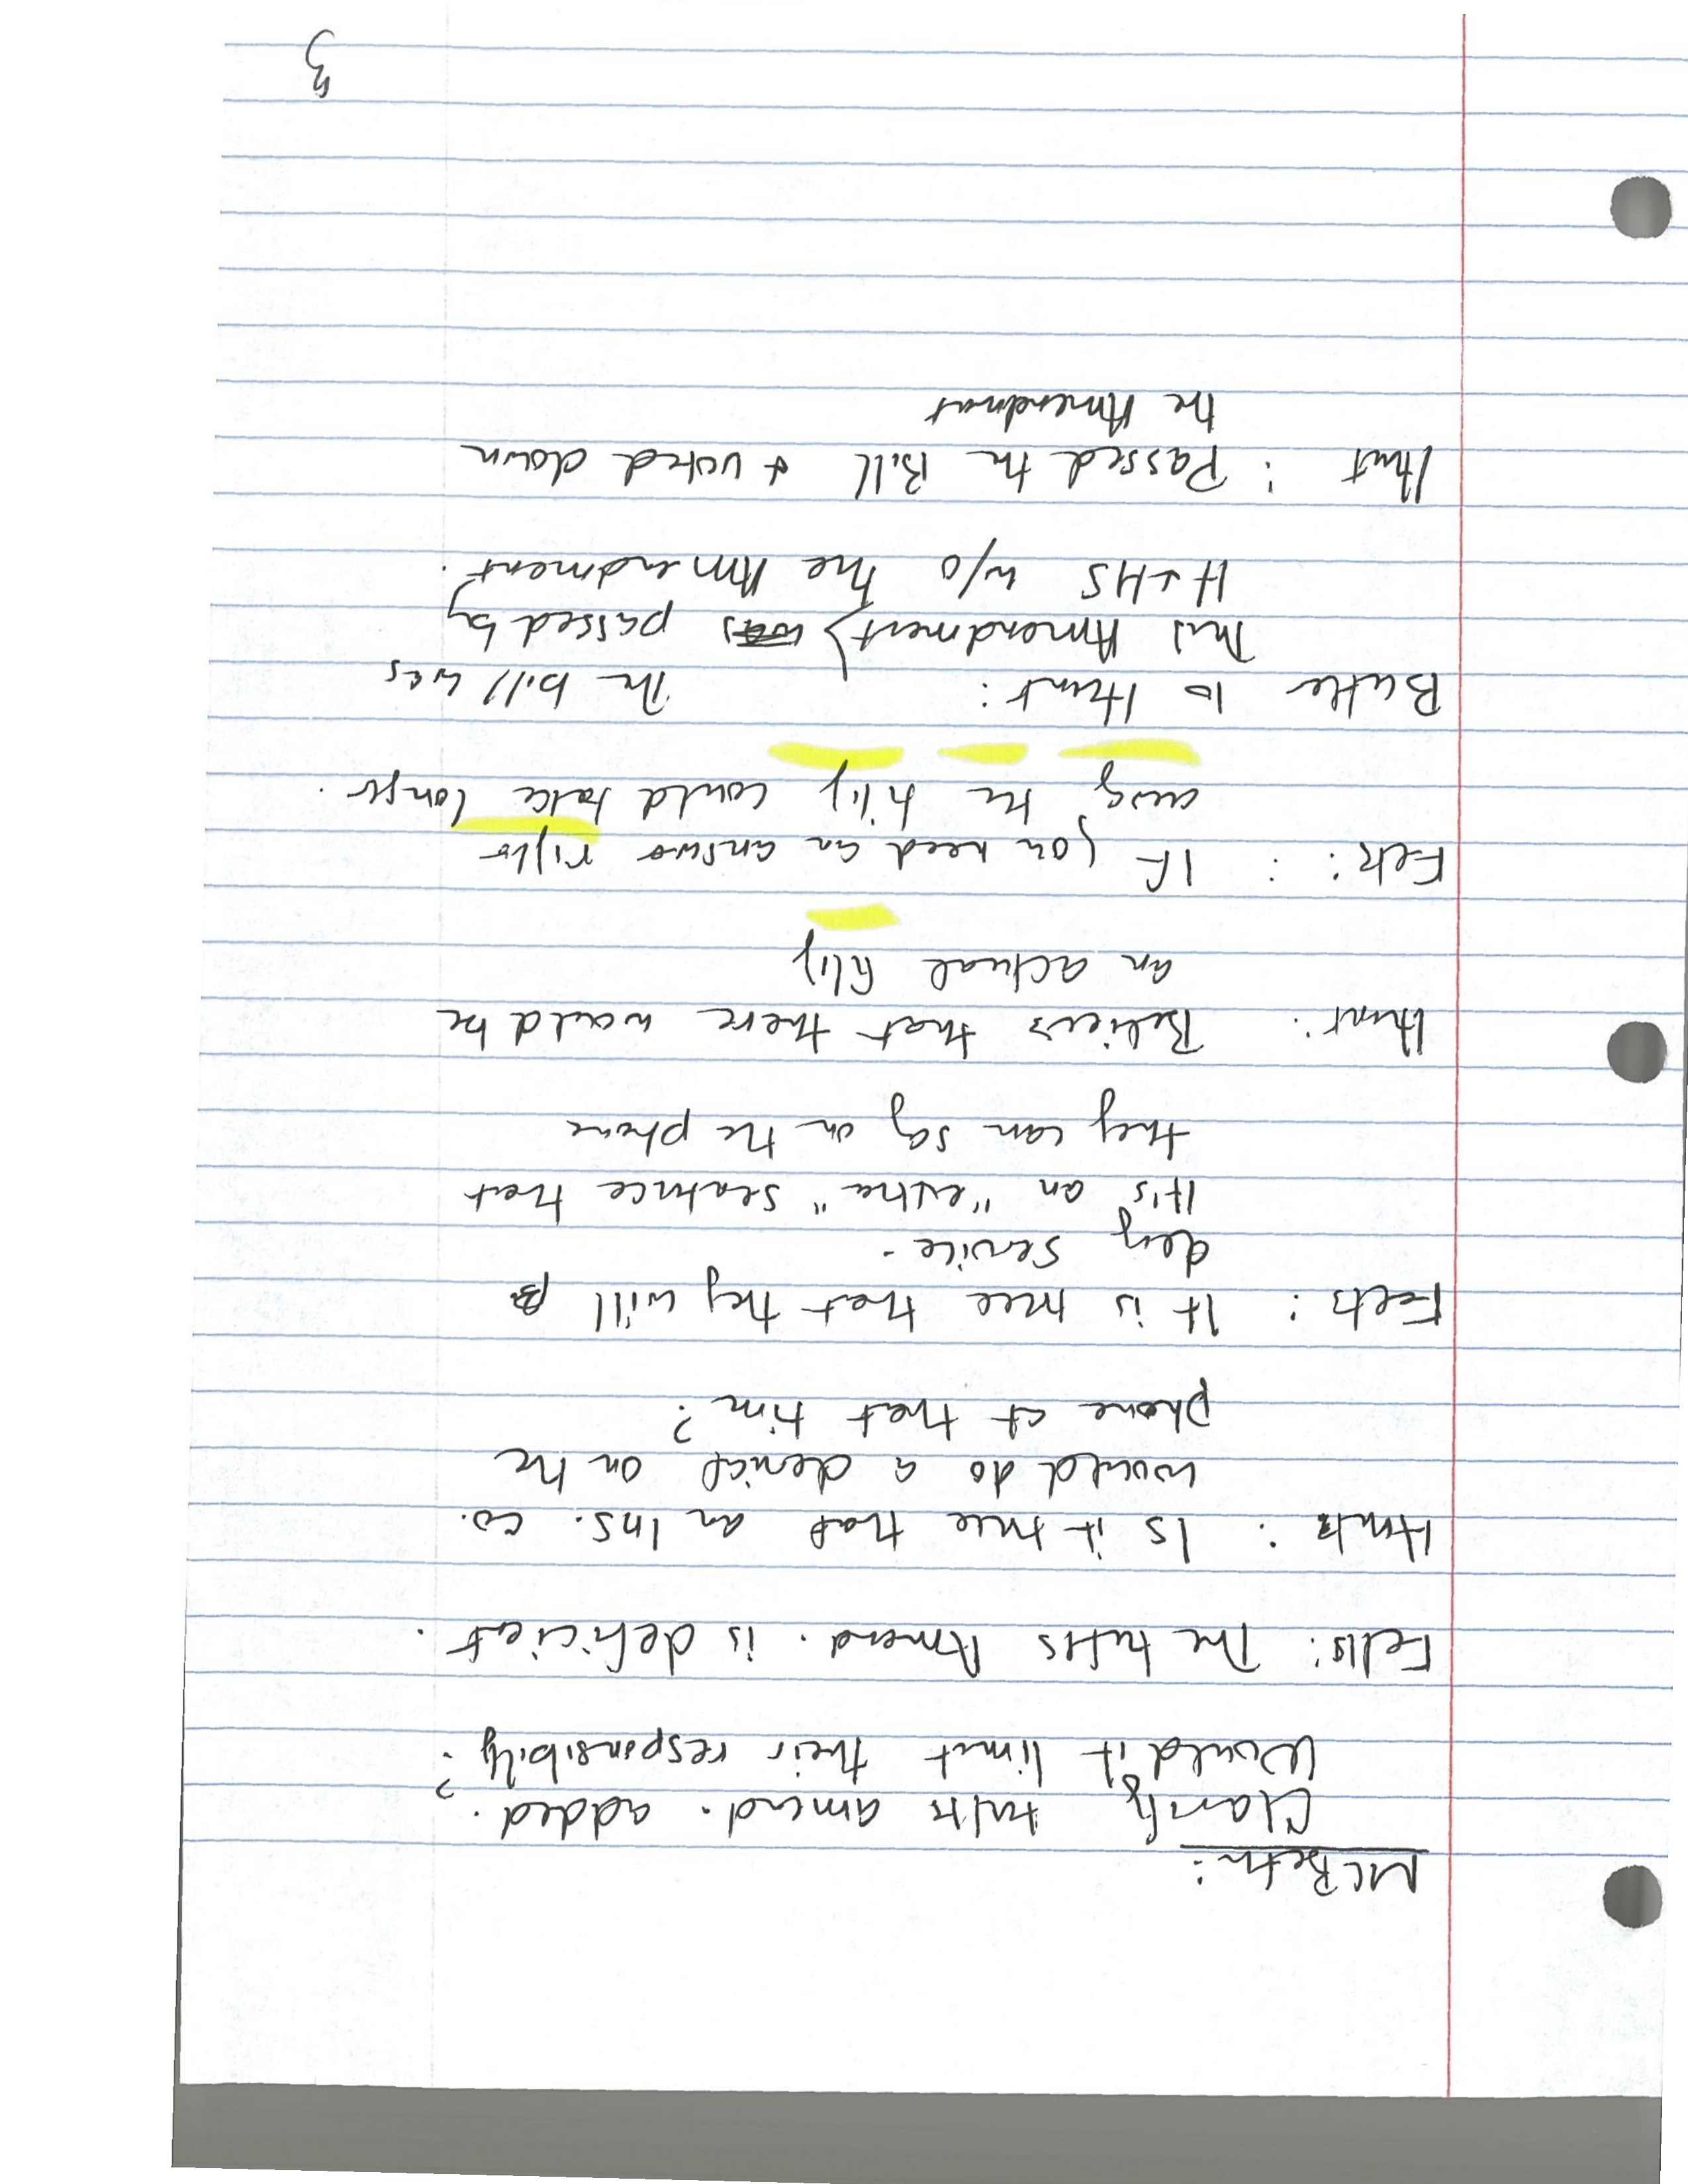 McBeth:
Clarify tufts amend. added.
Would it limit their responsibily?
Felts: The tufts Amend. is deficient.
Hunt: Is it true that an Ins. co.
would do a denial on the
phone at that tim?
Felts: It is true that they will
deny service.
It's an "extra" sentence that
they can say on the phone
Hunt: Believs that there would be
an actual
Felt: If you need an answer right
away the could take longer.
Butler to Hunt: The bill was
This Amendment} was passed by
H&HS w/o the Amendment.
Hunt: Passed the Bill & voted down
the Amendment
3